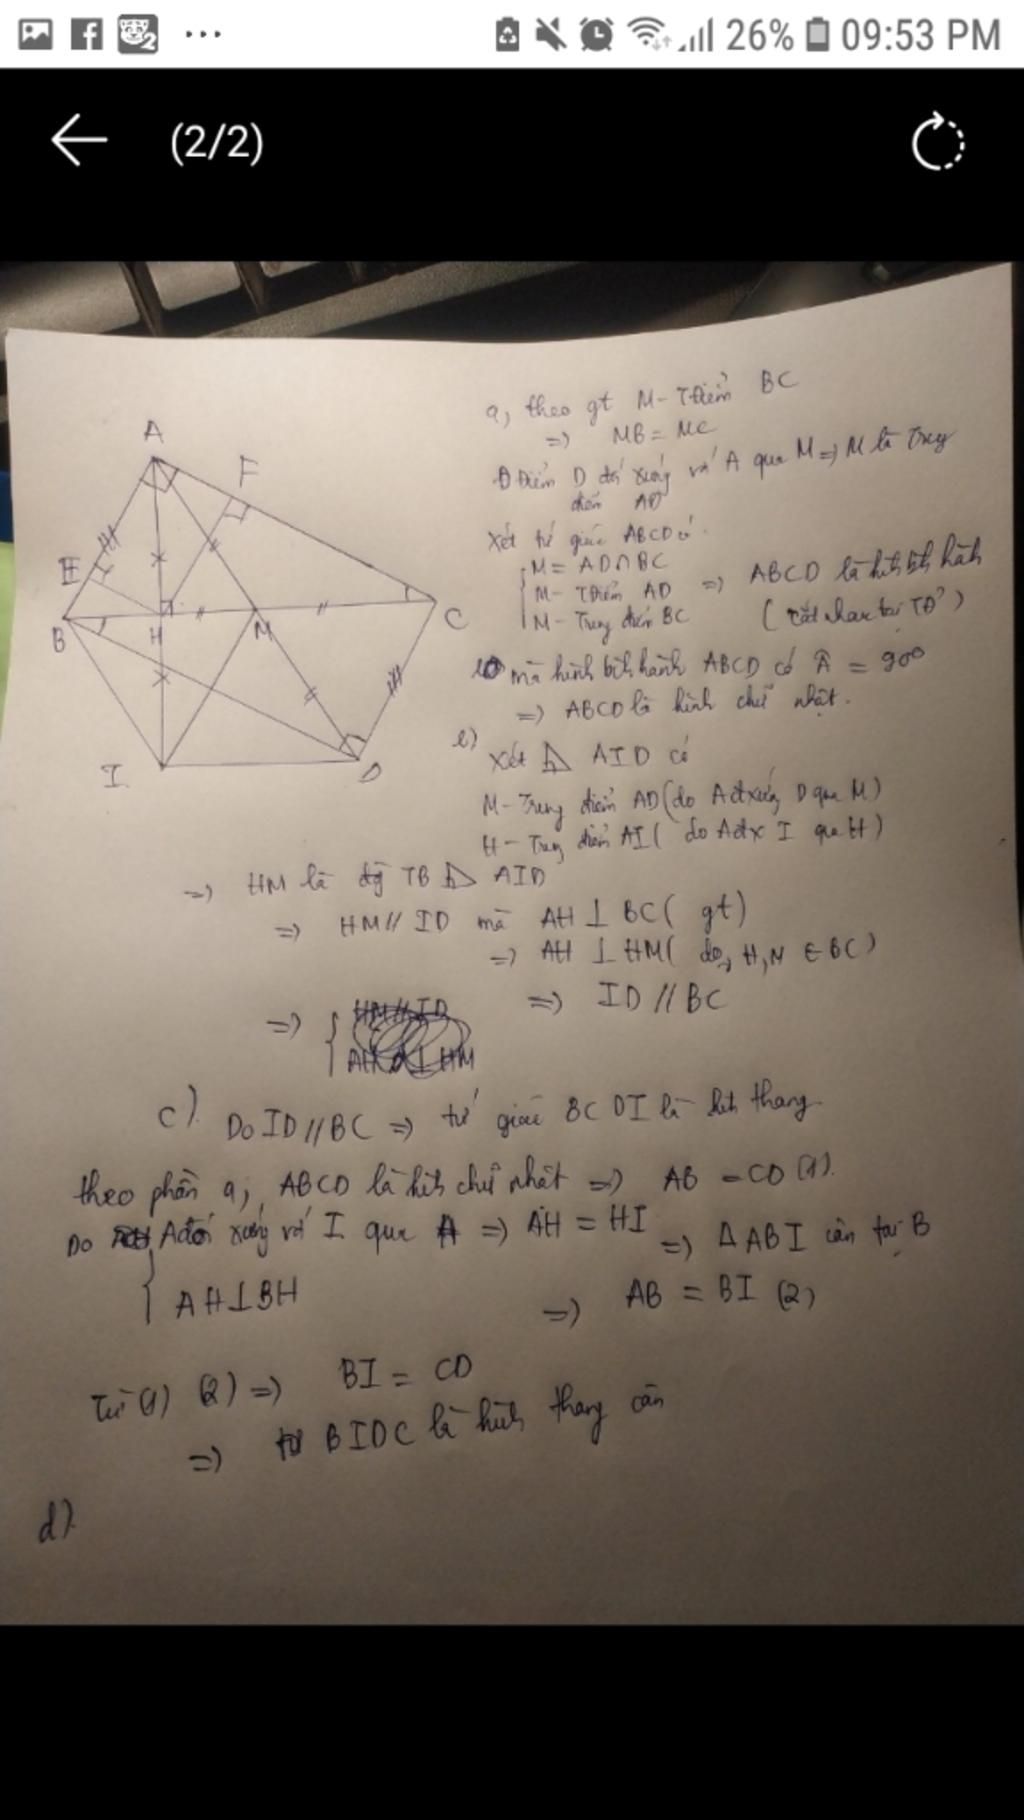 26% 09:53 PM
(2/2)
A
F
E
B
H
M
C
I
D
a, theo gt M- Tđiểm BC
=> MB = MC
Điểm D đối xứng với A qua M => M là trung
điểm AD
Xét tứ giác ABCD có
M = AD ∩ BC
M- Tđiểm AD => ABCD là hình bình hành
M- Trung điểm BC (cắt nhau tại TĐ')
mà hình bình hành ABCD có Â = 90°
=> ABCD là hình chữ nhật.
Xét AID có
M- Trung điểm AD (do A đ xứng D qua M)
H- Trung điểm AI ( do A đx I qua H)
=> HM là đg TB AID
=> HM // ID mà AH ⊥ BC ( gt)
=> AH ⊥ HM ( do, H, M ∈ BC)
=> { HM // ID => ID // BC
AH ⊥ HM
c). Do ID // BC => tứ giác BCDI là hình thang
theo phần a, ABCD là hình chữ nhật => AB = CD (1).
Do A đối xứng với I qua A => AH = HI => Δ ABI cân tại B
{ AH ⊥ BH => AB = BI (2)
Từ (1) (2) => BI = CD
=> BIDC là hình thang cân
d).